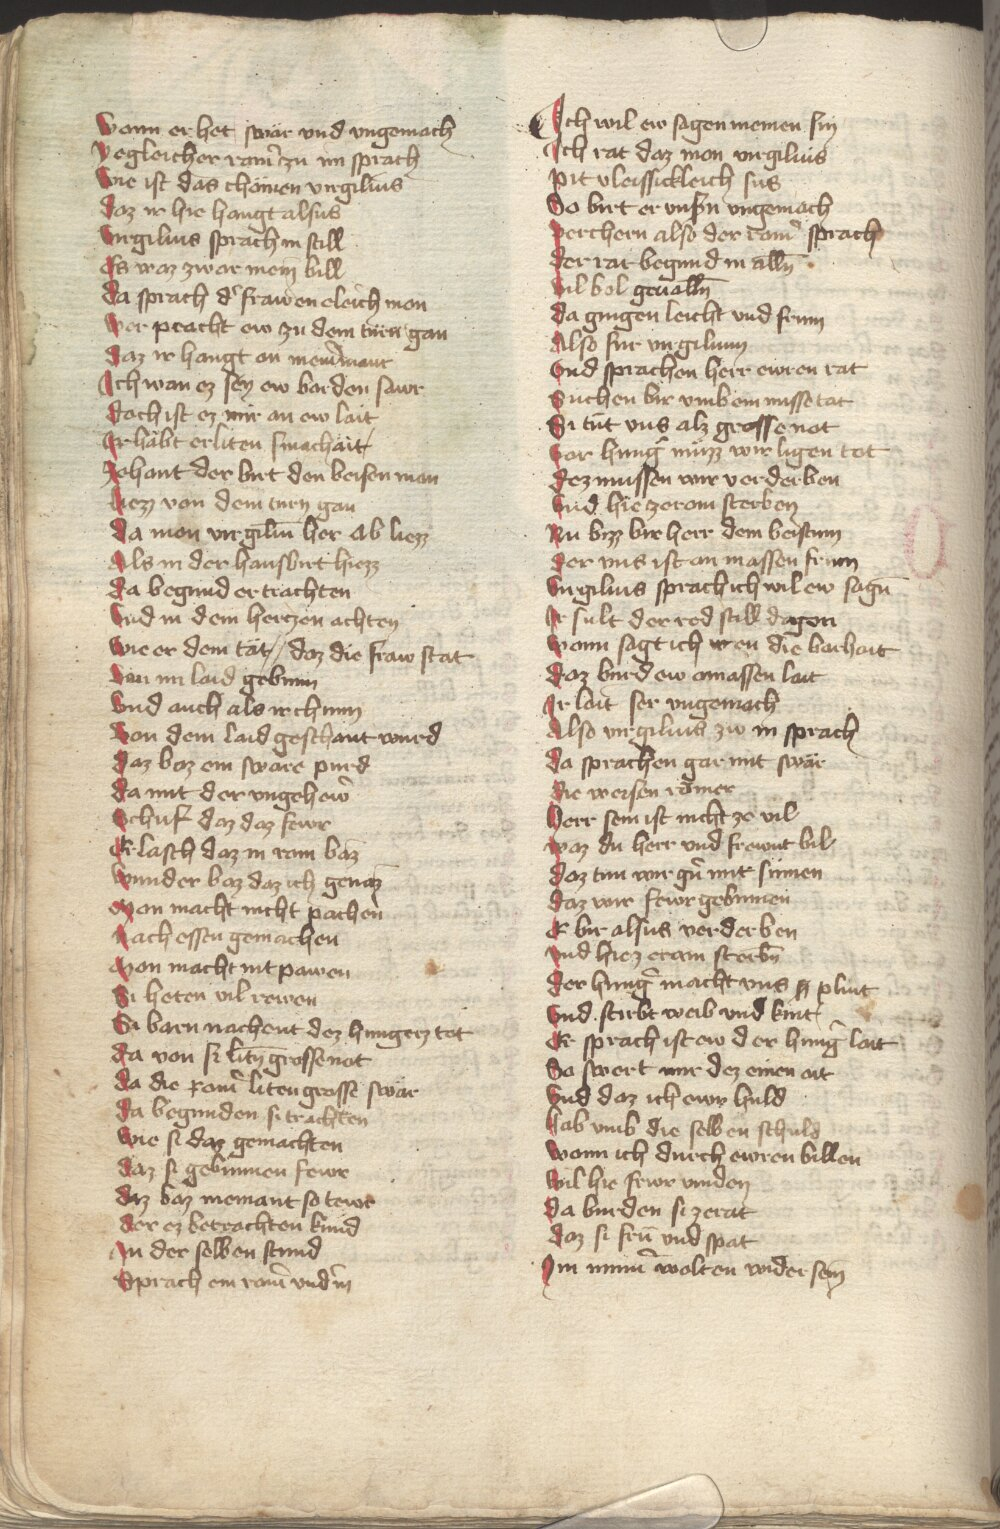 Wann er het swär vnd vngemach
Yegleicher ram̾ zu im sprach
Wie ist das chömen virgilius
Daz ir hie hangt alsus
Virgilius sprach in still
Es waz zwar mein bill
Da sprach d̾ frawen eleich man
Wer pracht ew zu dem turn gan
Daz ir hangt an meiner maur
Ich wan ez sey ew barden sawr
Doch ist ez mir an ew lait
Ir habt erliten smachait
Zehant der birt den beisen man
Liezz von dem turn gan
Da man virgiliū her ab liezz
Als in der hausbirt hiezz
Da begund er trachten
Vnd in dem herczen achten
Wie er dem tät // daz die fraw stat
Von im laid gebunn
Vnd auch als ir chunn
Von dem laid geschant wurd
Daz baz ein sware purd
Da mit der vngehew̾
Schuf daz daz fewr
Erlasch daz in ram baz
Wunder baz daz ich genaz
Man macht nicht pachen
Nach essen gemachen
Man macht nit pawen
Si heten vil rewen
Si barn nachent dez hungerz tot
Da von si litn̄ grosse not
Da die ram̾ liten grosse swär
Da begunden si trachten
Wie si daz gemachten
Daz si gebunnen fewr
Daz baz niemant so tewr
Der ez betrachten kund
In der selben stund
Sprach ein ram̾ vnd̾ in
Ich wil ew sagen meinen sin
Ich rat daz man virgilius
Pit vleissickleich sus
So birt er vnsn̾ vngemach
Verchern also der ram̾ sprach
Der rat begund in alln̄
Vil bol geualln̄
Da gingen leicht vnd frum
Also fur virgilium
Vnd sprachen herr ewren rat
Suchen bir vmb ein missetat
Si tut vns alz grosse not
Vor hung̾ müzz wir ligen tot
Dez mussen wir verderben
Vnd hie ze ram sterben
Nu bizz bir herr dem beistum
Der vns ist an massen frum
Virgilius sprach ich wil ew sagn̄
Ir sult der red still dagen
Wann sagt ich ew en die barhait
Daz burd ew amassen lait
Ir lait ser vngemach
Also virgilius zw in sprach
Da sprachen gar mit swär
Die weisen römer
Herr sein ist nicht ze vil
Waz du herr vnd frewnt bil
Daz tun wir gn̾ mit sinnen
Daz wir fewr gebinnen
E bir alsus verderben
Vnd hie ze ram sterbn̄
Der hung̾ macht vns plint
Vnd stirbt weib vnd kint
Er sprach ist ew der hung̾ lait
So swert mir dez einen ait
Vnd daz ich ewr huld
Hab vmb die selben schuld
Wann ich durch ewren billen
Wil hie fewr vinden
Da burden si ze rat
Daz si frū vnd spat
Im nimm̾ wolten wider sein